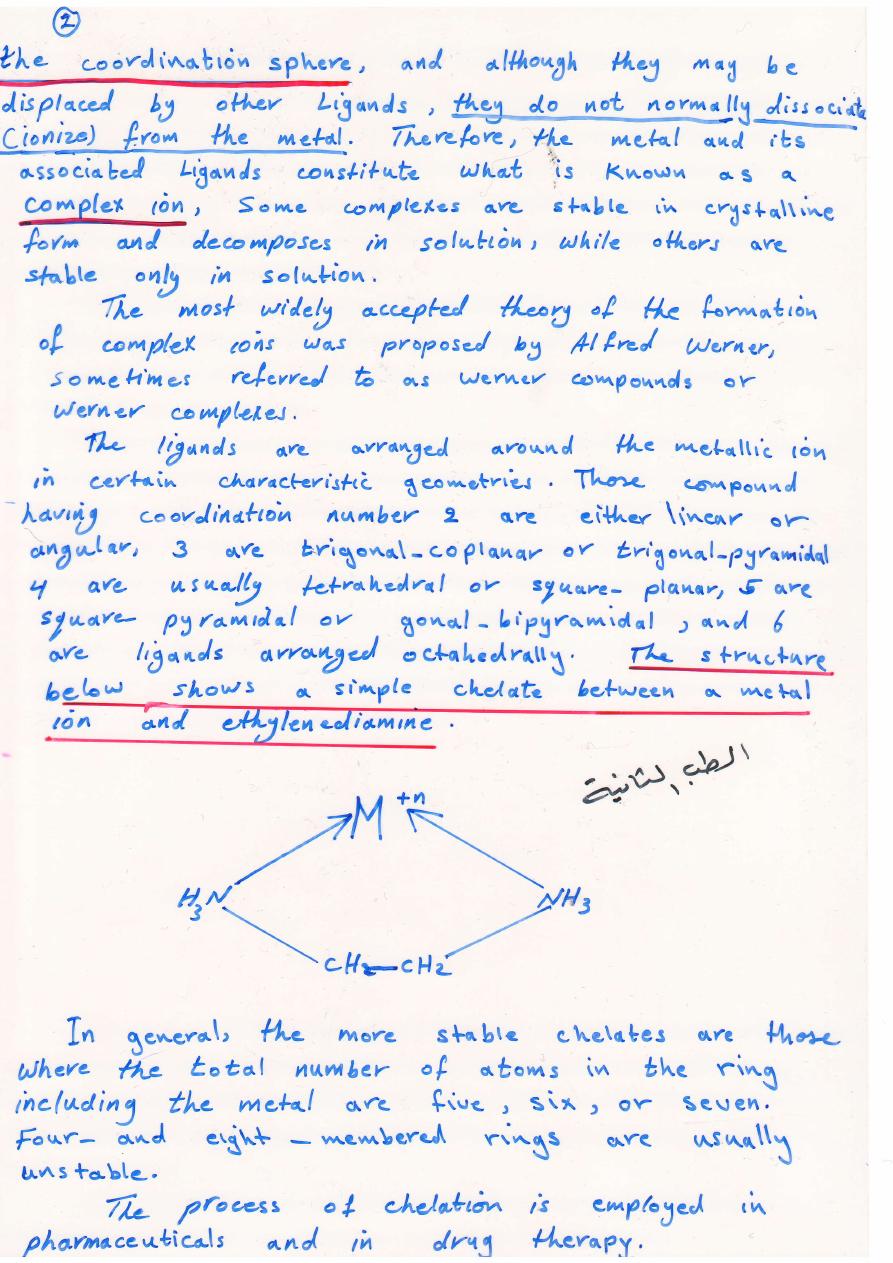 2
the coordination sphere, and although they may be
displaced by other Ligands, they do not normally dissociate
(ionize) from the metal. Therefore, the metal and its
associated Ligands constitute what is Known as a
complex ion, Some complexes are stable in crystalline
form and decomposes in solution, while others are
stable only in solution.
The most widely accepted theory of the formation
of complex ions was proposed by Alfred Werner,
sometimes referred to as werner compounds or
werner complexes.
The ligands are arranged around the metallic ion
in certain characteristic geometries. Those compound
having coordination number 2 are either linear or
angular, 3 are trigonal-coplanar or trigonal-pyramidal
4 are usually tetrahedral or square- planar, 5 are
square- pyramidal or gonal-bipyramidal, and 6
are ligands arranged octahedrally. The structure
below shows a simple chelate between a metal
ion and ethylenediamine.
M +n
H3N NH3
CH2—CH2
In general, the more stable chelates are those
where the total number of atoms in the ring
including the metal are five, six, or seven.
Four- and eight-membered rings are usually
unstable.
The process of chelation is employed in
pharmaceuticals and in drug therapy.